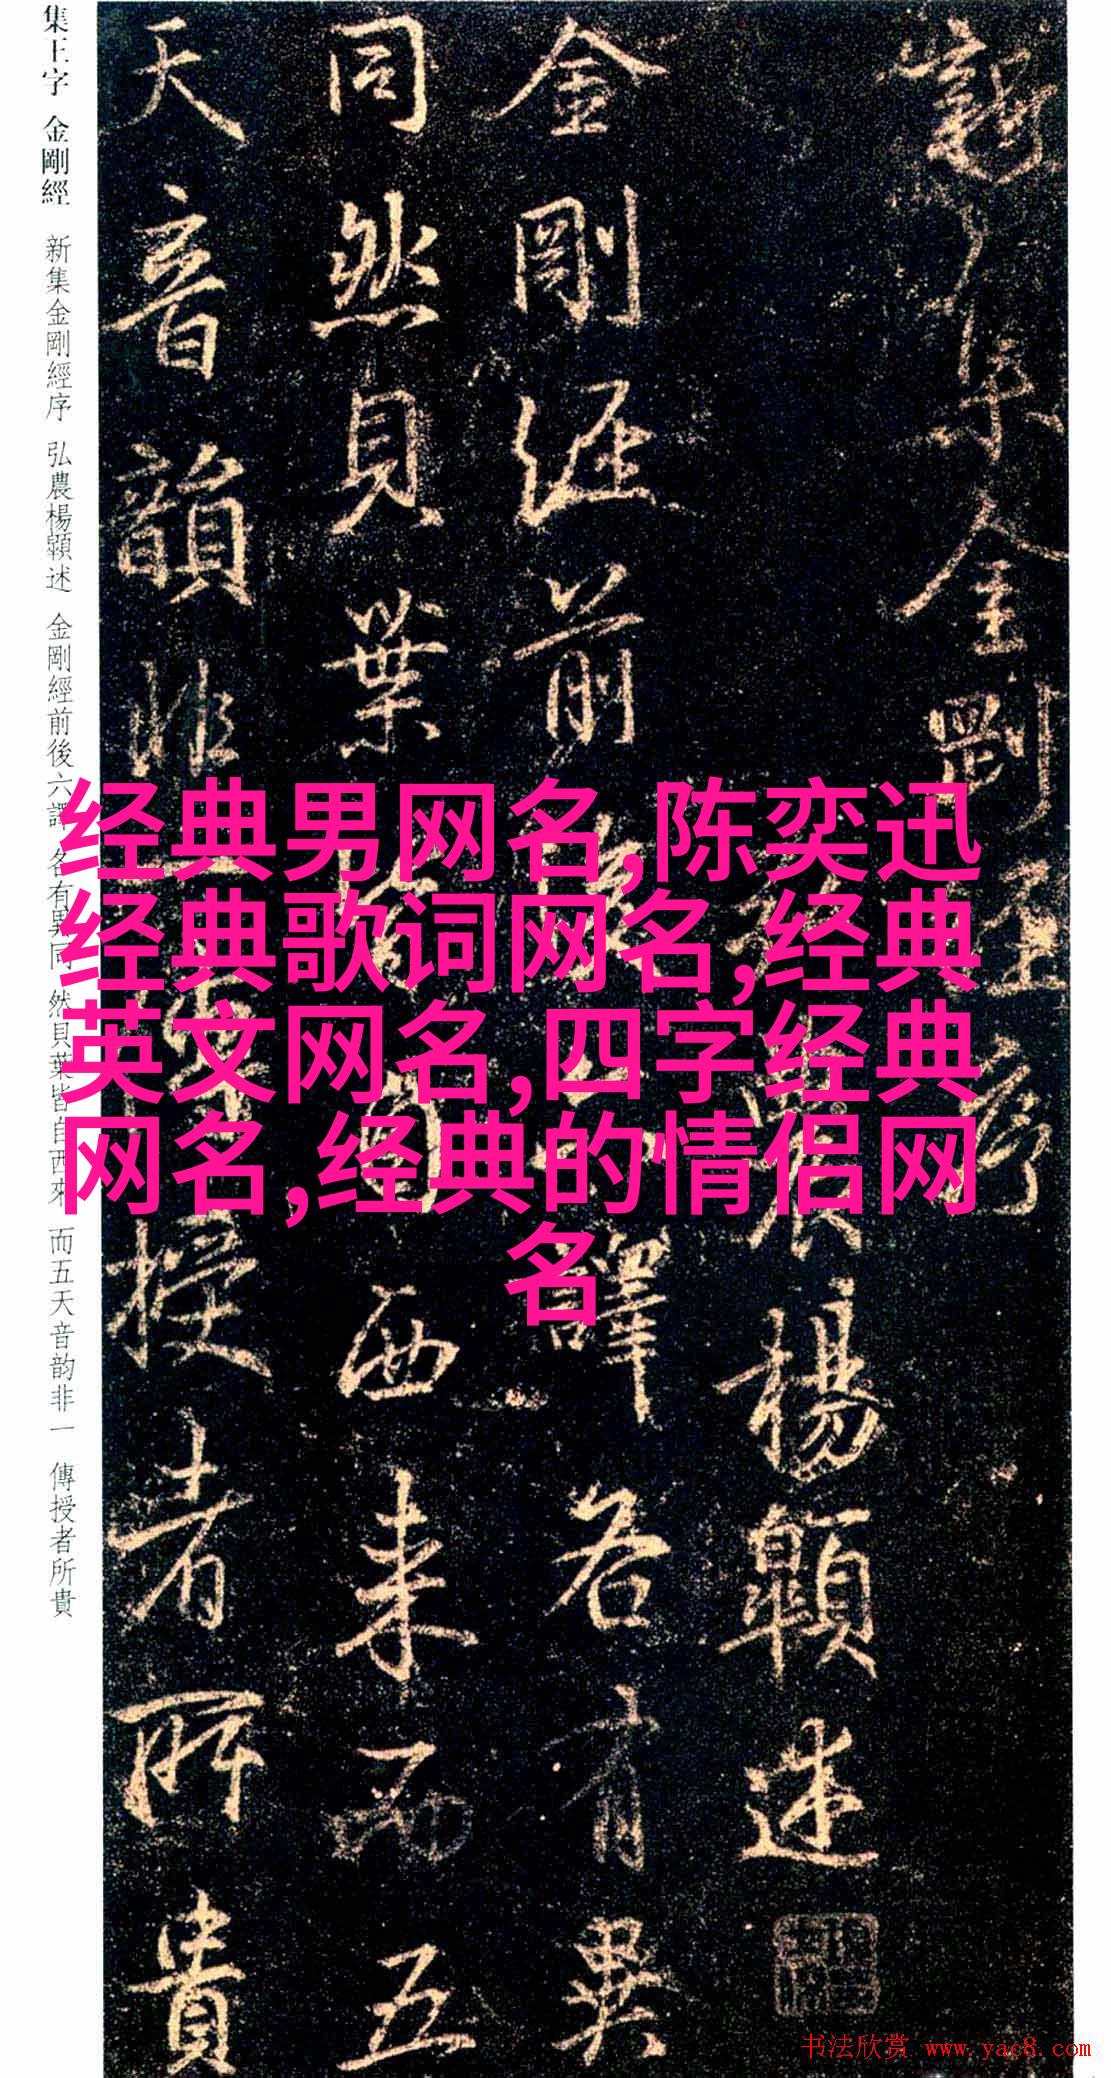 新集金剛經序
弘農楊顥述
金剛經前後六譯各有異
同然貝葉皆自西來而五
天音韻非一傳授者所貴
集王字 金剛經 新集金剛經序 弘農楊顥述 金剛經前後六譯 名有異同 然貝葉皆自西來 而五天音韵非一 傳授者所貴
经典男网名,陈奕迅
经典歌词网名,经典
英文网名,四字经典
网名,经典的情侣网
名
书法欣赏 www.yac8.com